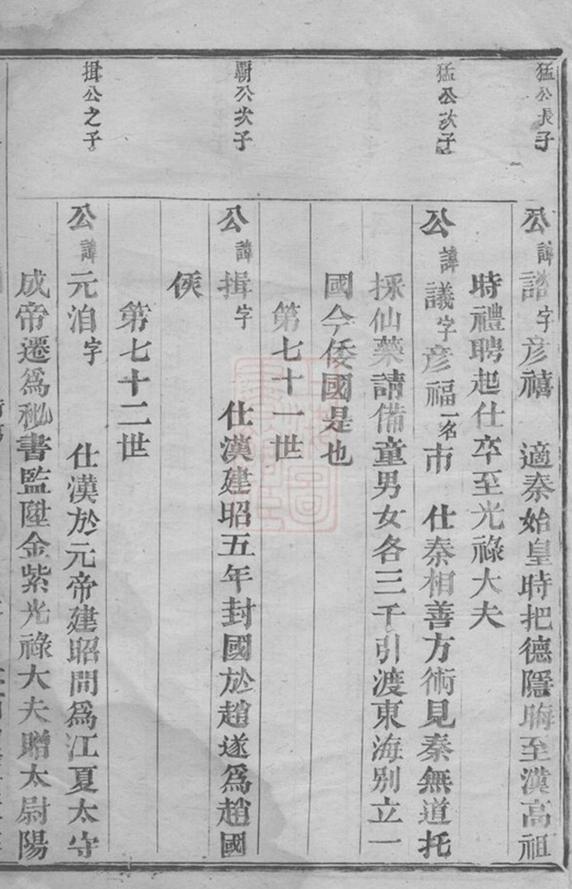 猛公長子
公諱誥字彥禧 適秦始皇時把德隱晦至漢高祖
時禮聘起仕卒至光祿大夫
猛公次子
公諱議字彥福一名市 仕秦相善方術見秦無道托
採仙藥請備童男女各三千引渡東海别立一
國今倭國是也
第七十一世
覇公次子
公諱揖字 仕漢建昭五年封國於趙遂爲趙國
侯
第七十二世
揖公之子
公諱元洎字 仕漢於元帝建昭間爲江夏太守
成帝遷爲秘書監陞金紫光祿大夫贈太尉陽